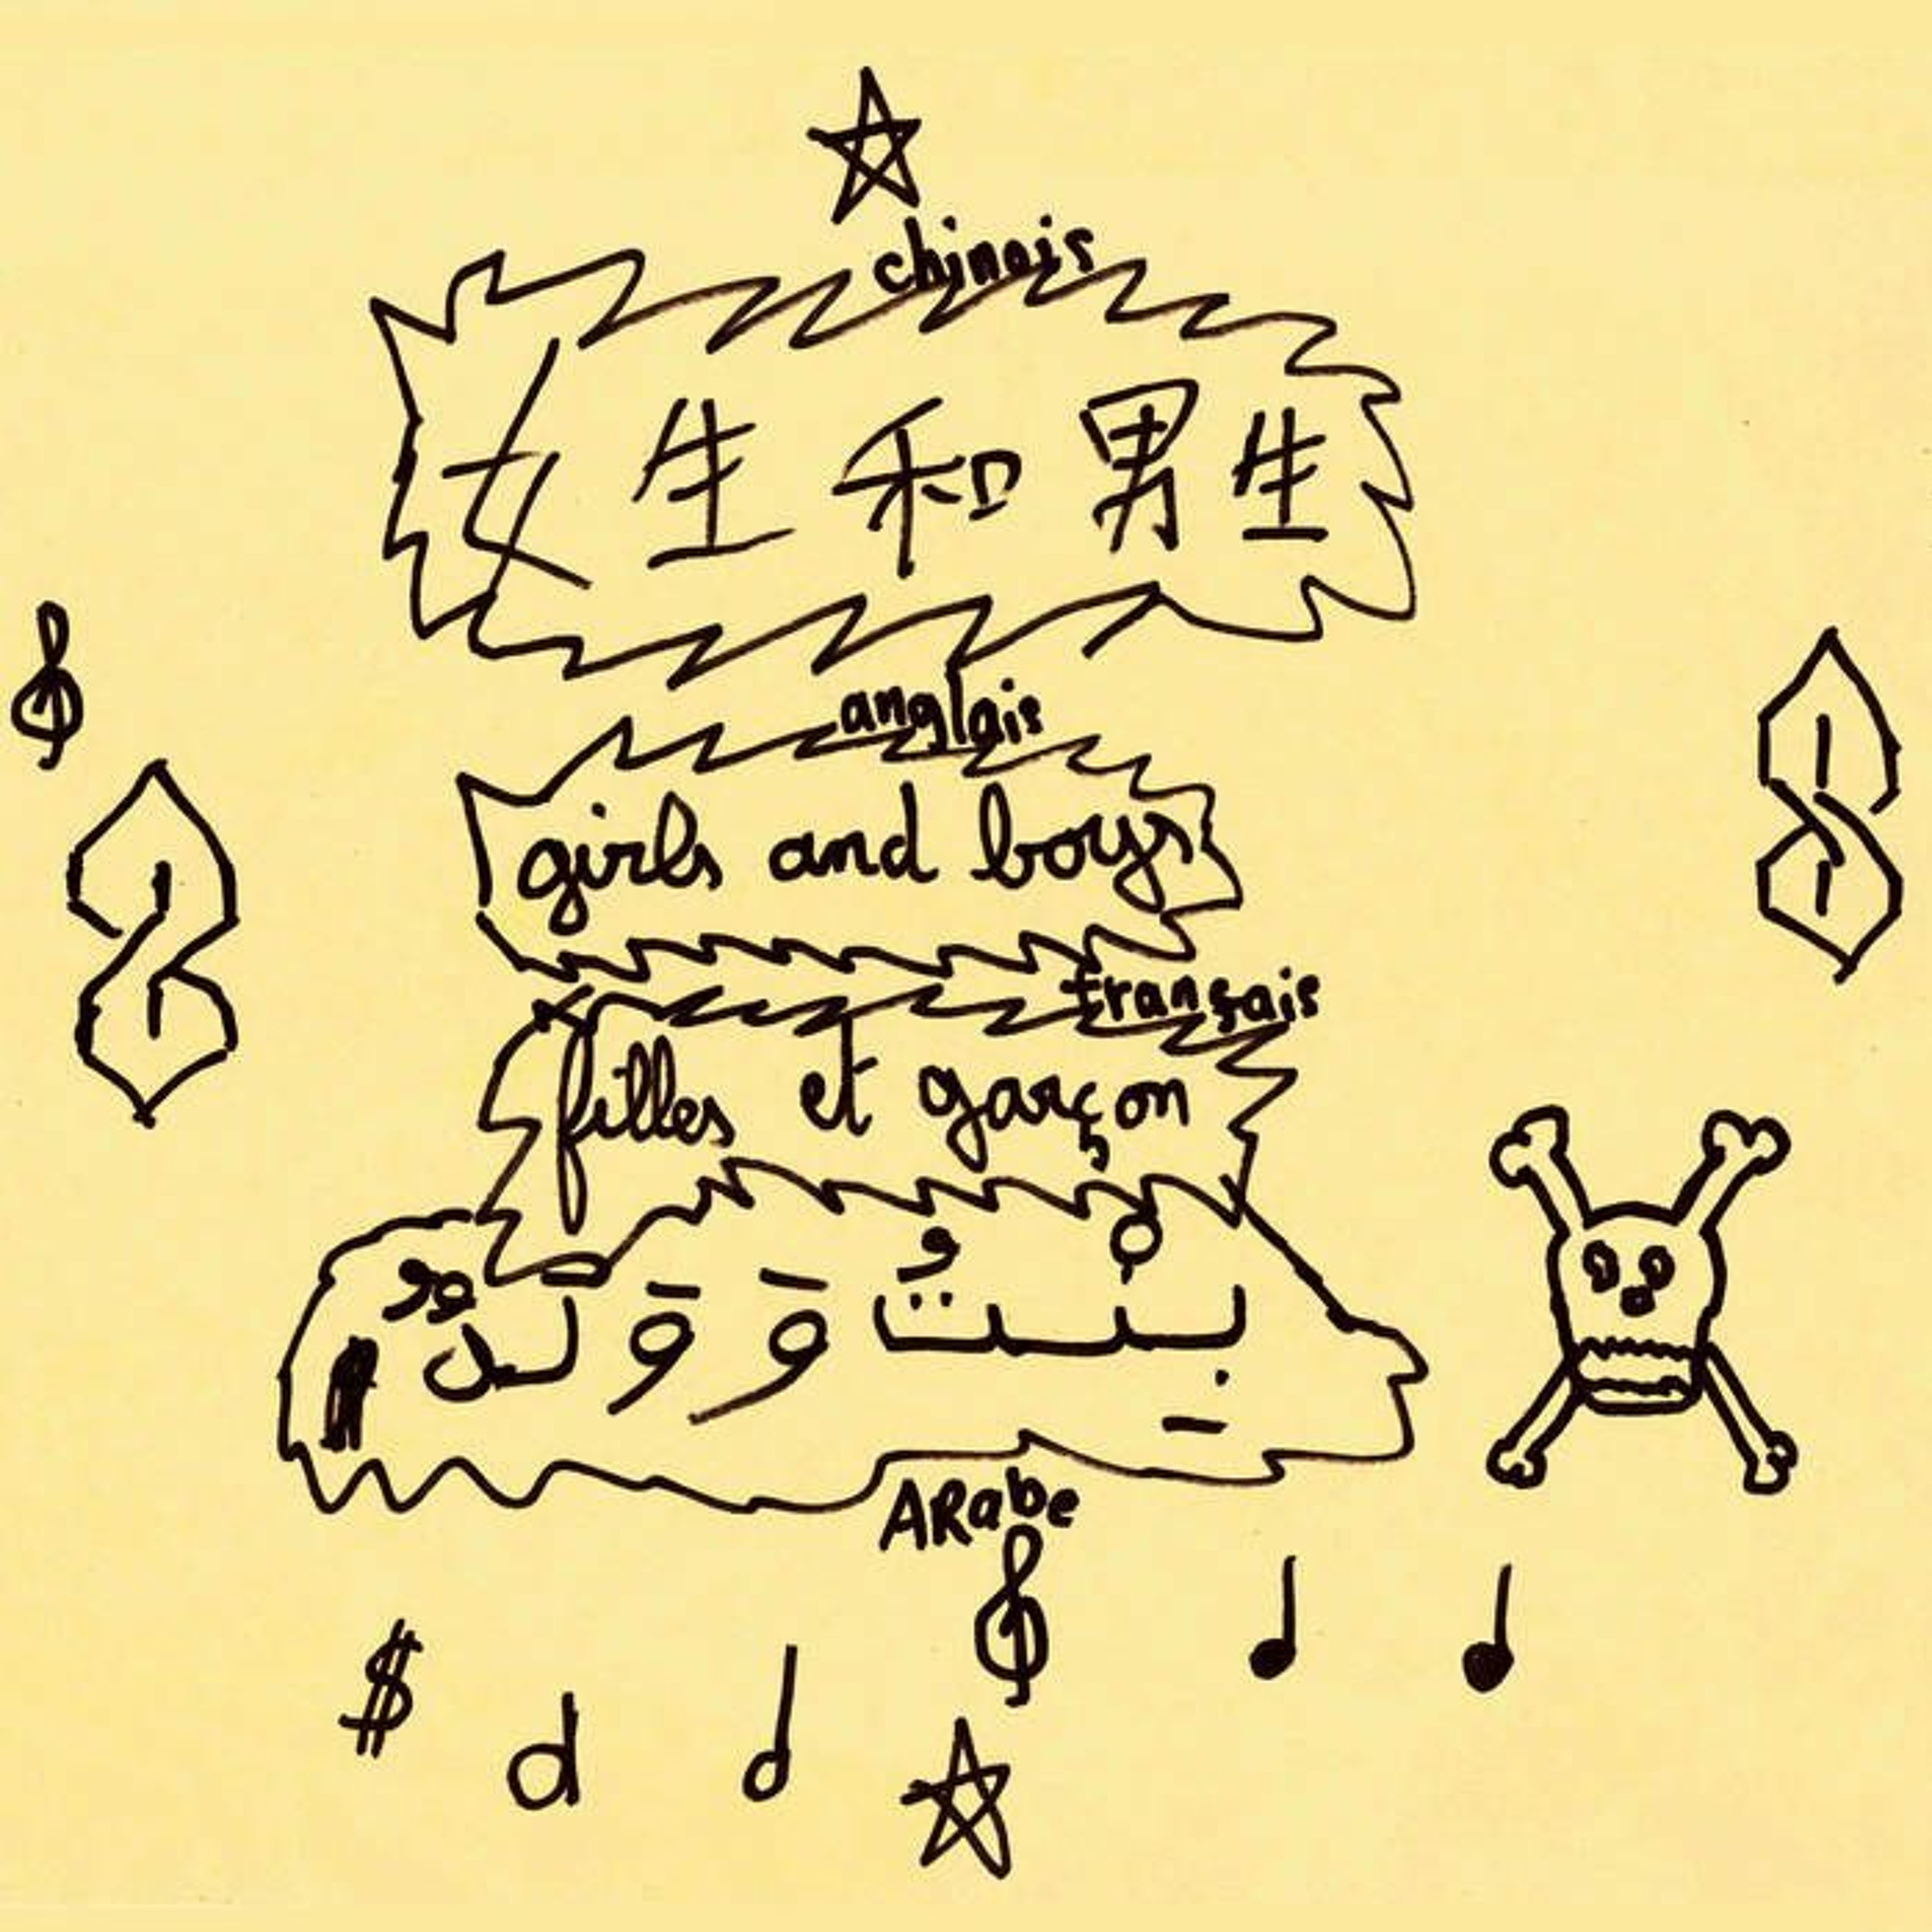 chinois
女生和男生
anglais
girls and boys
français
filles et garçon
بِنْتٌ وَ وَلَدٌ
ARabe
$
d